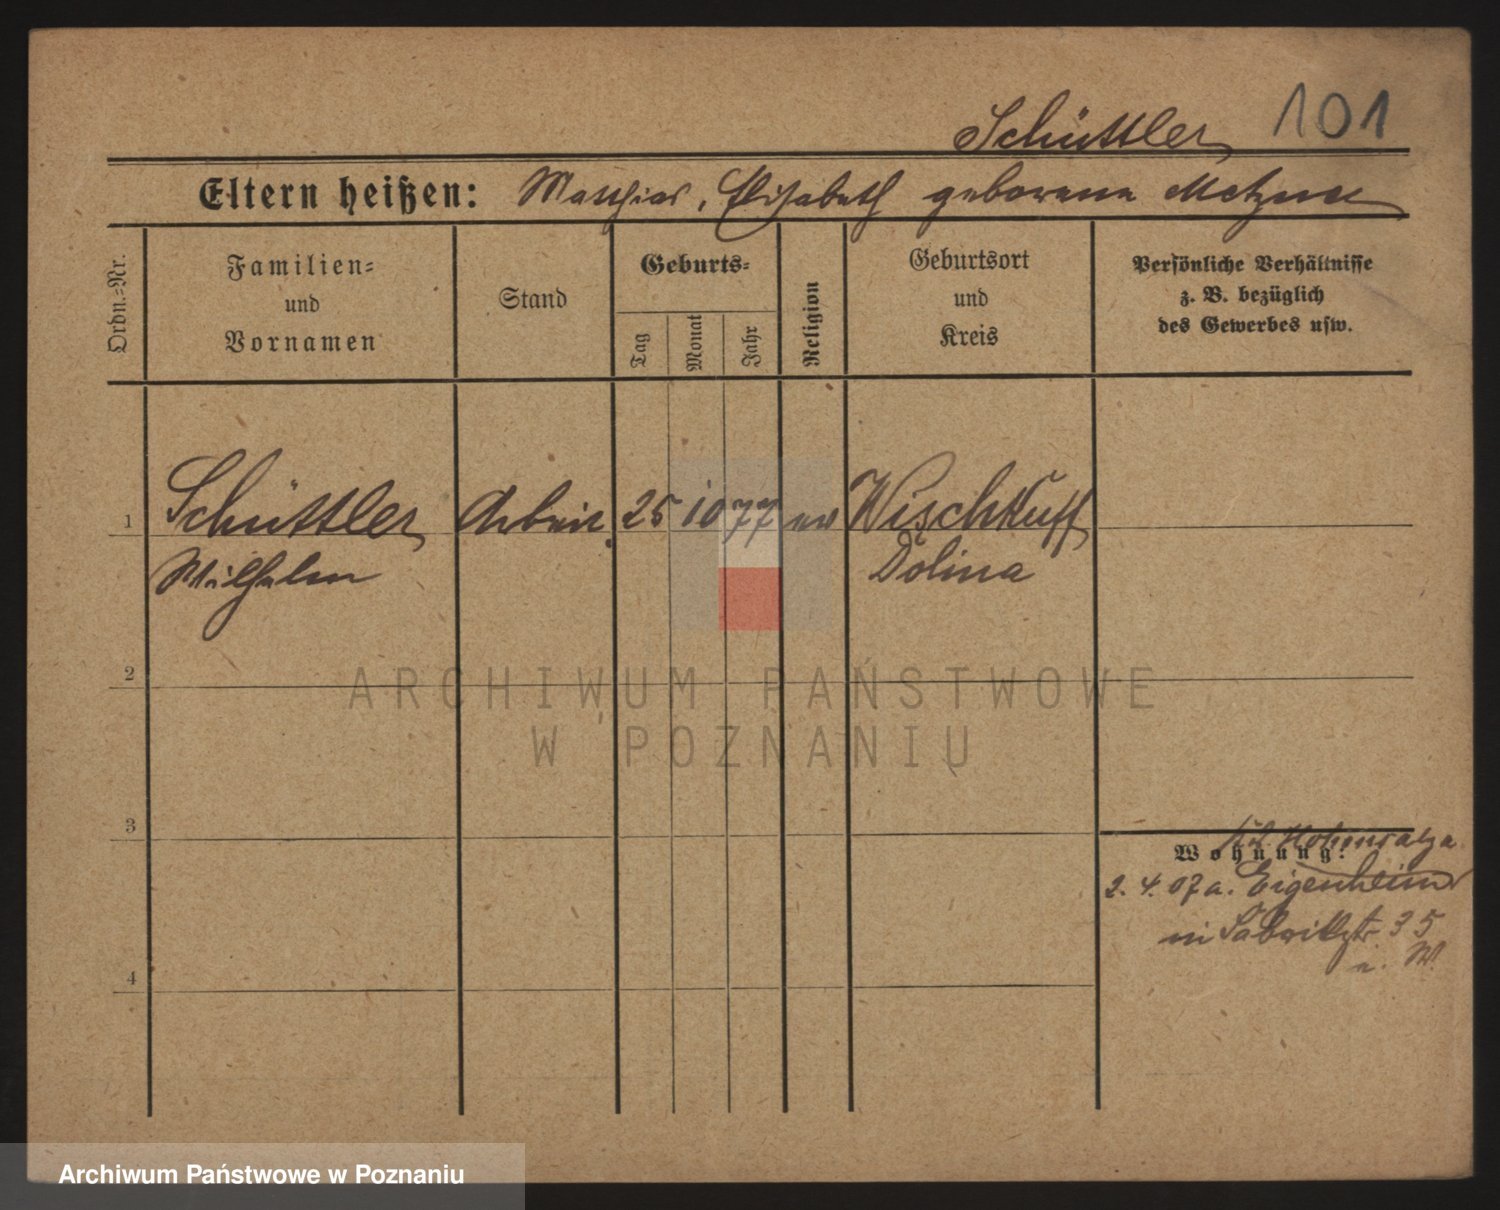 Schüttler 101
Eltern heißen: Matthias, Elisabeth geborene Metzner
Ordn.=Nr.
Familien=
und
Vornamen
Stand
Geburts=
Tag
Monat
Jahr
Religion
Geburtsort
und
Kreis
Persönliche Verhältnisse
z. B. bezüglich
des Gewerbes usw.
1 Schüttler Arbeit. 25 10 77 ev Wischkuff
Wilhelm Dolina
2
3
Hohensalza
Wohnung:
2. 4. 07 a. Eigenheim
35
n. W.
4
ARCHIWUM PAŃSTWOWE
W POZNANIU
Archiwum Państwowe w Poznaniu